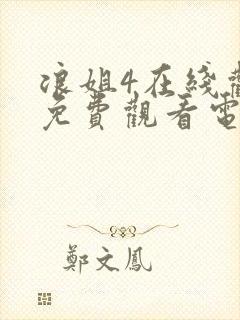 浪姐4在线觀
免費觀看電
鄭文鳳